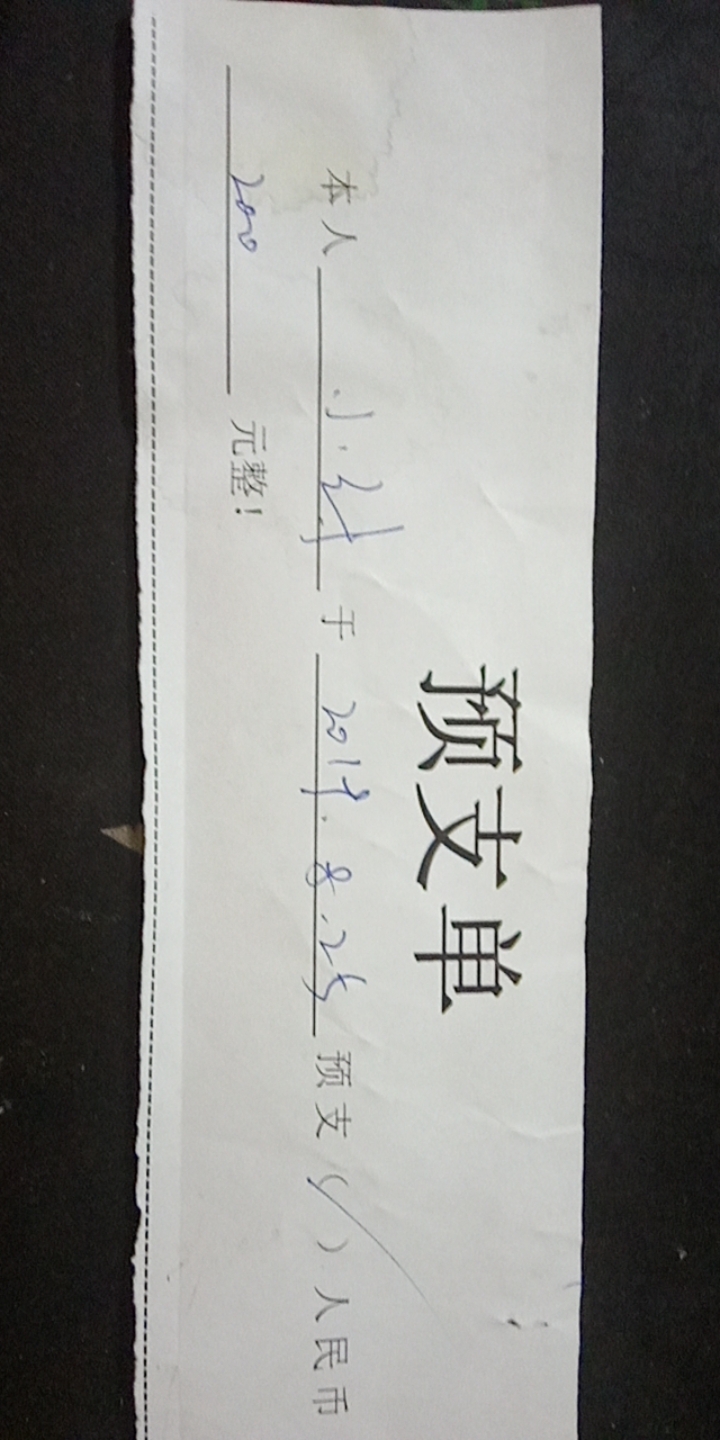 预支单
本人 小 于 2019.8.25 预支(✓)人民币
2000 元整!